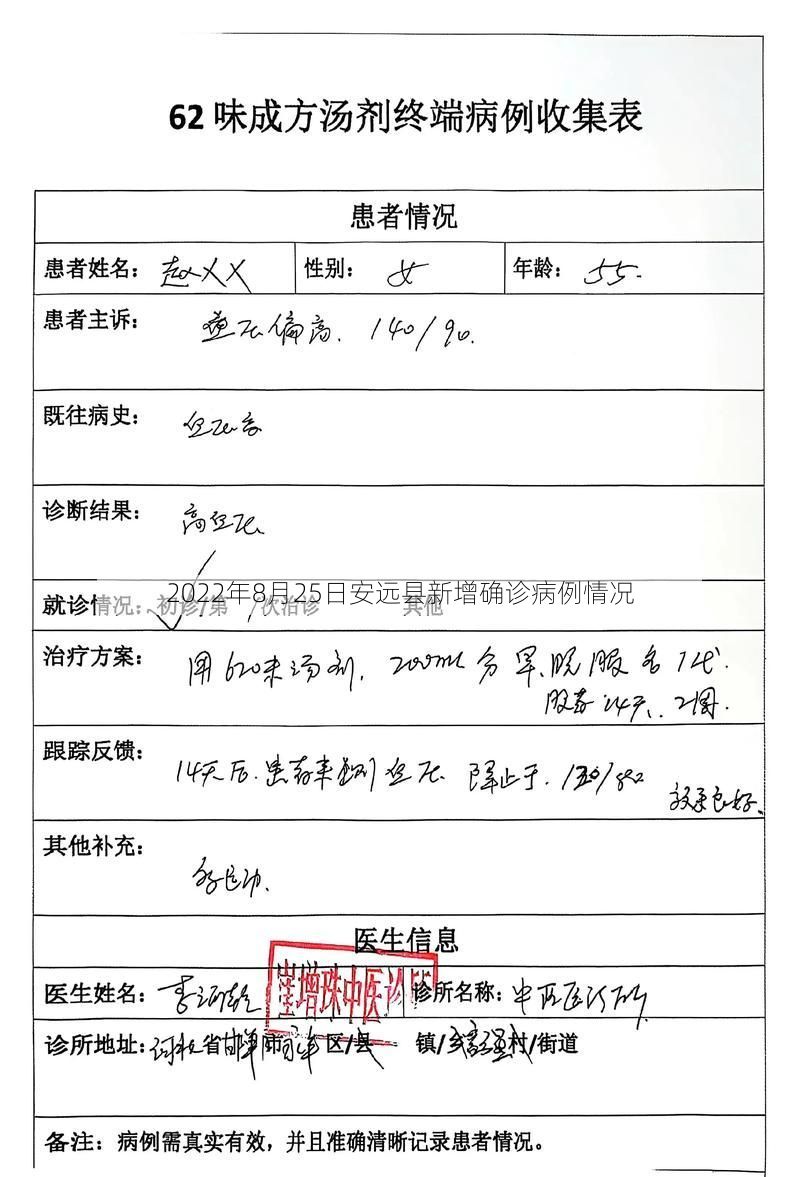 62 味成方汤剂终端病例收集表
患者情况
患者姓名： 赵XX 性别： 女 年龄： 55.
患者主诉： 血压偏高. 140/90.
既往病史： 血压高
诊断结果： 高血压
2022年8月25日安远县新增确诊病例情况
就诊情况： 初诊/第 次治诊 其他
治疗方案： 用 汤剂, 200ml 分早、晚服 各1代.
服药14天、2周.
跟踪反馈： 14天后. 患者来 血压 降 于.
效果良好.
其他补充：
医生信息
医生姓名： 李 诊所名称： 中医诊所
崔增珠中医诊所
诊所地址： 河北省邯郸市 区/县 镇/乡 村/街道
备注：病例需真实有效，并且准确清晰记录患者情况。